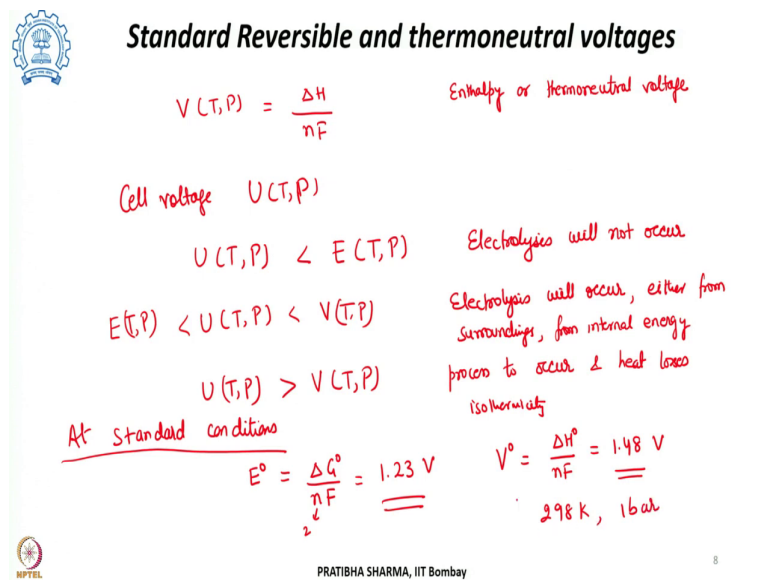 Standard Reversible and thermoneutral voltages
V(T,P) = ΔH / nF
Enthalpy or thermoneutral voltage
Cell voltage U(T,P)
U(T,P) < E(T,P)
Electrolysis will not occur
E(T,P) < U(T,P) < V(T,P)
Electrolysis will occur, either from
surroundings, from internal energy
U(T,P) > V(T,P)
process to occur & heat losses
isothermicity
At standard conditions
E° = ΔG° / nF = 1.23 V
2
V° = ΔH° / nF = 1.48 V
298K, 1bar
NPTEL
PRATIBHA SHARMA, IIT Bombay
8